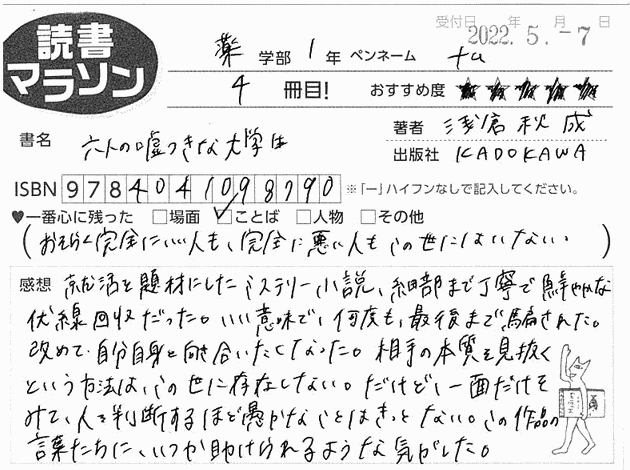 読書
マラソン
受付日 年 月 日
2022. 5. -7
薬 学部 1 年 ペンネーム
4 冊目! おすすめ度 ★★★★★
書名 六人の嘘つきな大学生
著者 浅倉秋成
出版社 KADOKAWA
ISBN 9784041098790 ※「ー」ハイフンなしで記入してください。
♥一番心に残った □場面 ☑ことば □人物 □その他
(おそらく完全にいい人も、完全に悪い人もこの世にはいない。)
感想 就活を題材にしたミステリー小説、細部まで丁寧で鮮やかな
伏線回収だった。いい意味で、何度も、最後まで騙された。
改めて自分自身と向き合いたくなった。相手の本質を見抜く
という方法は、この世に存在しない。だけど、一面だけを
みて、人を判断するほど愚かなことはきっとない。この作品の
言葉たちに、いつか助けられるような気がした。